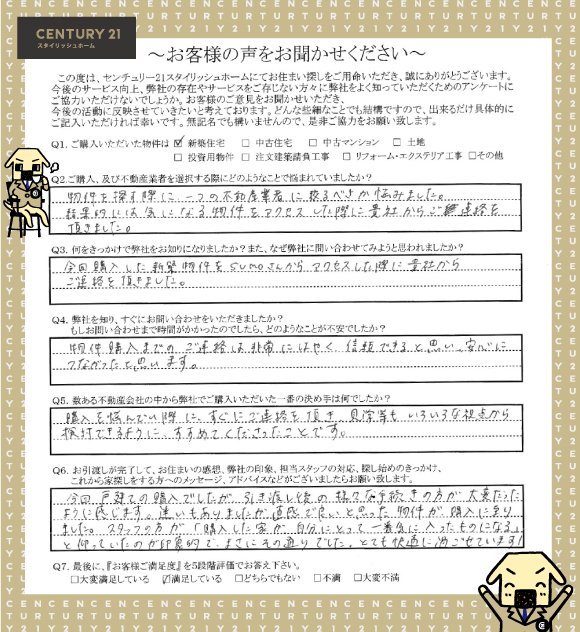 CENTURY 21
スタイリッシュホーム
～お客様の声をお聞かせください～
この度は、センチュリー21スタイリッシュホームにてお住まい探しをご用命いただき、誠にありがとうございます。
今後のサービス向上、弊社の存在やサービスをご存じない方々に弊社をよく知っていただくためのアンケートに
ご協力いただけないでしょうか。お客様のご意見をお聞かせいただき、
今後の活動に反映させていきたいと考えております。どんな些細なことでも結構ですので、出来るだけ具体的に
ご記入いただければ幸いです。無記名でも構いませんので、是非ご協力をお願い致します。
Q1. ご購入いただいた物件は ☑ 新築住宅 □ 中古住宅 □ 中古マンション □ 土地
□ 投資用物件 □ 注文建築請負工事 □ リフォーム・エクステリア工事 □その他
Q2.ご購入、及び不動産業者を選択する際にどのようなことで悩まれていましたか？
物件を探す際に一つの不動産業者に絞るべきか悩みました。
結果的には気になる物件をアクセスした際に貴社からご連絡を
頂きました。
Q3. 何をきっかけで弊社をお知りになりましたか？また、なぜ弊社に問い合わせてみようと思われましたか？
今回購入した新築物件をSUMOさんからアクセスした際に貴社から
ご連絡を頂きました。
Q4. 弊社を知り、すぐにお問い合わせをいただきましたか？
もしお問い合わせまで時間がかかったのでしたら、どのようなことが不安でしたか？
物件購入までのご連絡は非常にはやく、信頼できると思い、安心に
つながったと思います。
Q5. 数ある不動産会社の中から弊社でご購入いただいた一番の決め手は何でしたか？
購入を悩んでいる際に、すぐにご連絡を頂き、見学等もいろいろな視点から
検討できるように、すすめてくださったことです。
Q6. お引渡しが完了して、お住まいの感想、弊社の印象、担当スタッフの対応、探し始めのきっかけ、
これから家探しをする方へのメッセージ、アドバイスなどがございましたらお願い致します。
今回戸建ての購入でしたが、引き渡し後の様々な手続きの方が大変だった
ように感じます。迷いもありましたが直感で良いと思った物件が購入に至り
ました。スタッフの方が「購入した家が自分にとって一番気に入ったものになる」
と仰っていたのが印象的で、まさにその通りでした。とても快適に過ごせています!
Q7. 最後に、『お客様ご満足度』を5段階評価でお答え下さい。
□大変満足している ☑満足している □どちらでもない □不満 □大変不満